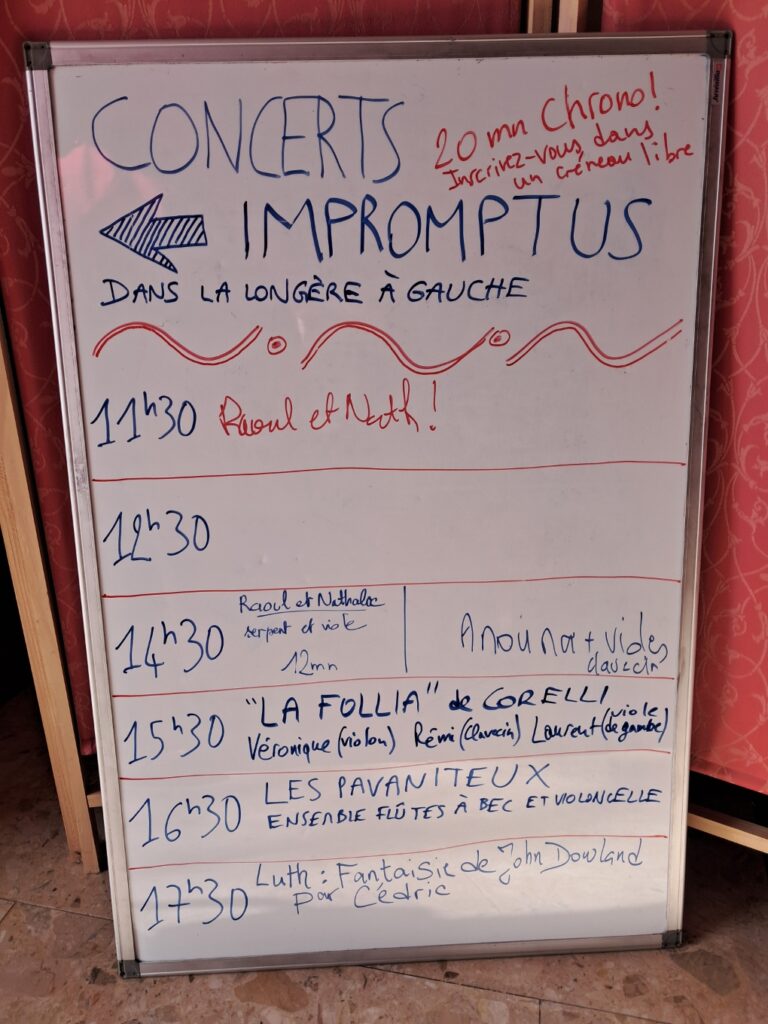 CONCERTS
20 mn Chrono!
Inscrivez-vous dans
un créneau libre
IMPROMPTUS
DANS LA LONGÈRE À GAUCHE
11h30 Raoul et Nath!
12h30
14h30
Raoul et
serpent et viole
12mn
+
clavecin
15h30
"LA FOLLIA" de CORELLI
Véronique (violon) Rémi (clavecin) Laurent (viole de gambe)
16h30
LES PAVANITEUX
ENSEMBLE FLÛTES À BEC ET VIOLONCELLE
17h30
Luth : Fantaisie de John Dowland
par Cédric